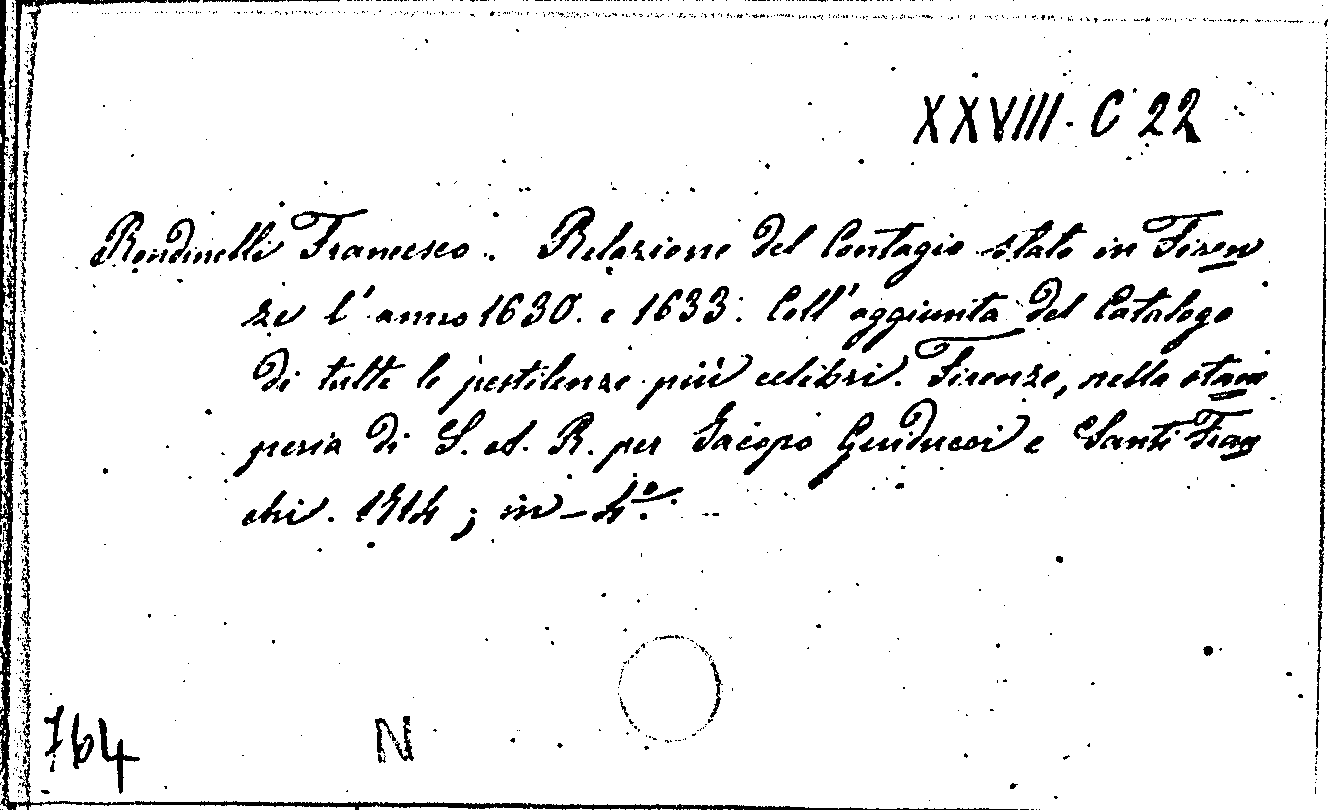 XXVIII. C 22
Rondinelli Francesco. Relazione del Contagio stato in Firen
ze l'anno 1630. e 1633. Coll'aggiunta del Catalogo
di tutte le pestilenze più celibri. Firenze, nella stam
peria di S. A. R. per Jacopo Guiducci e Santi Fran
chi. 1714; in-4.º
764
N